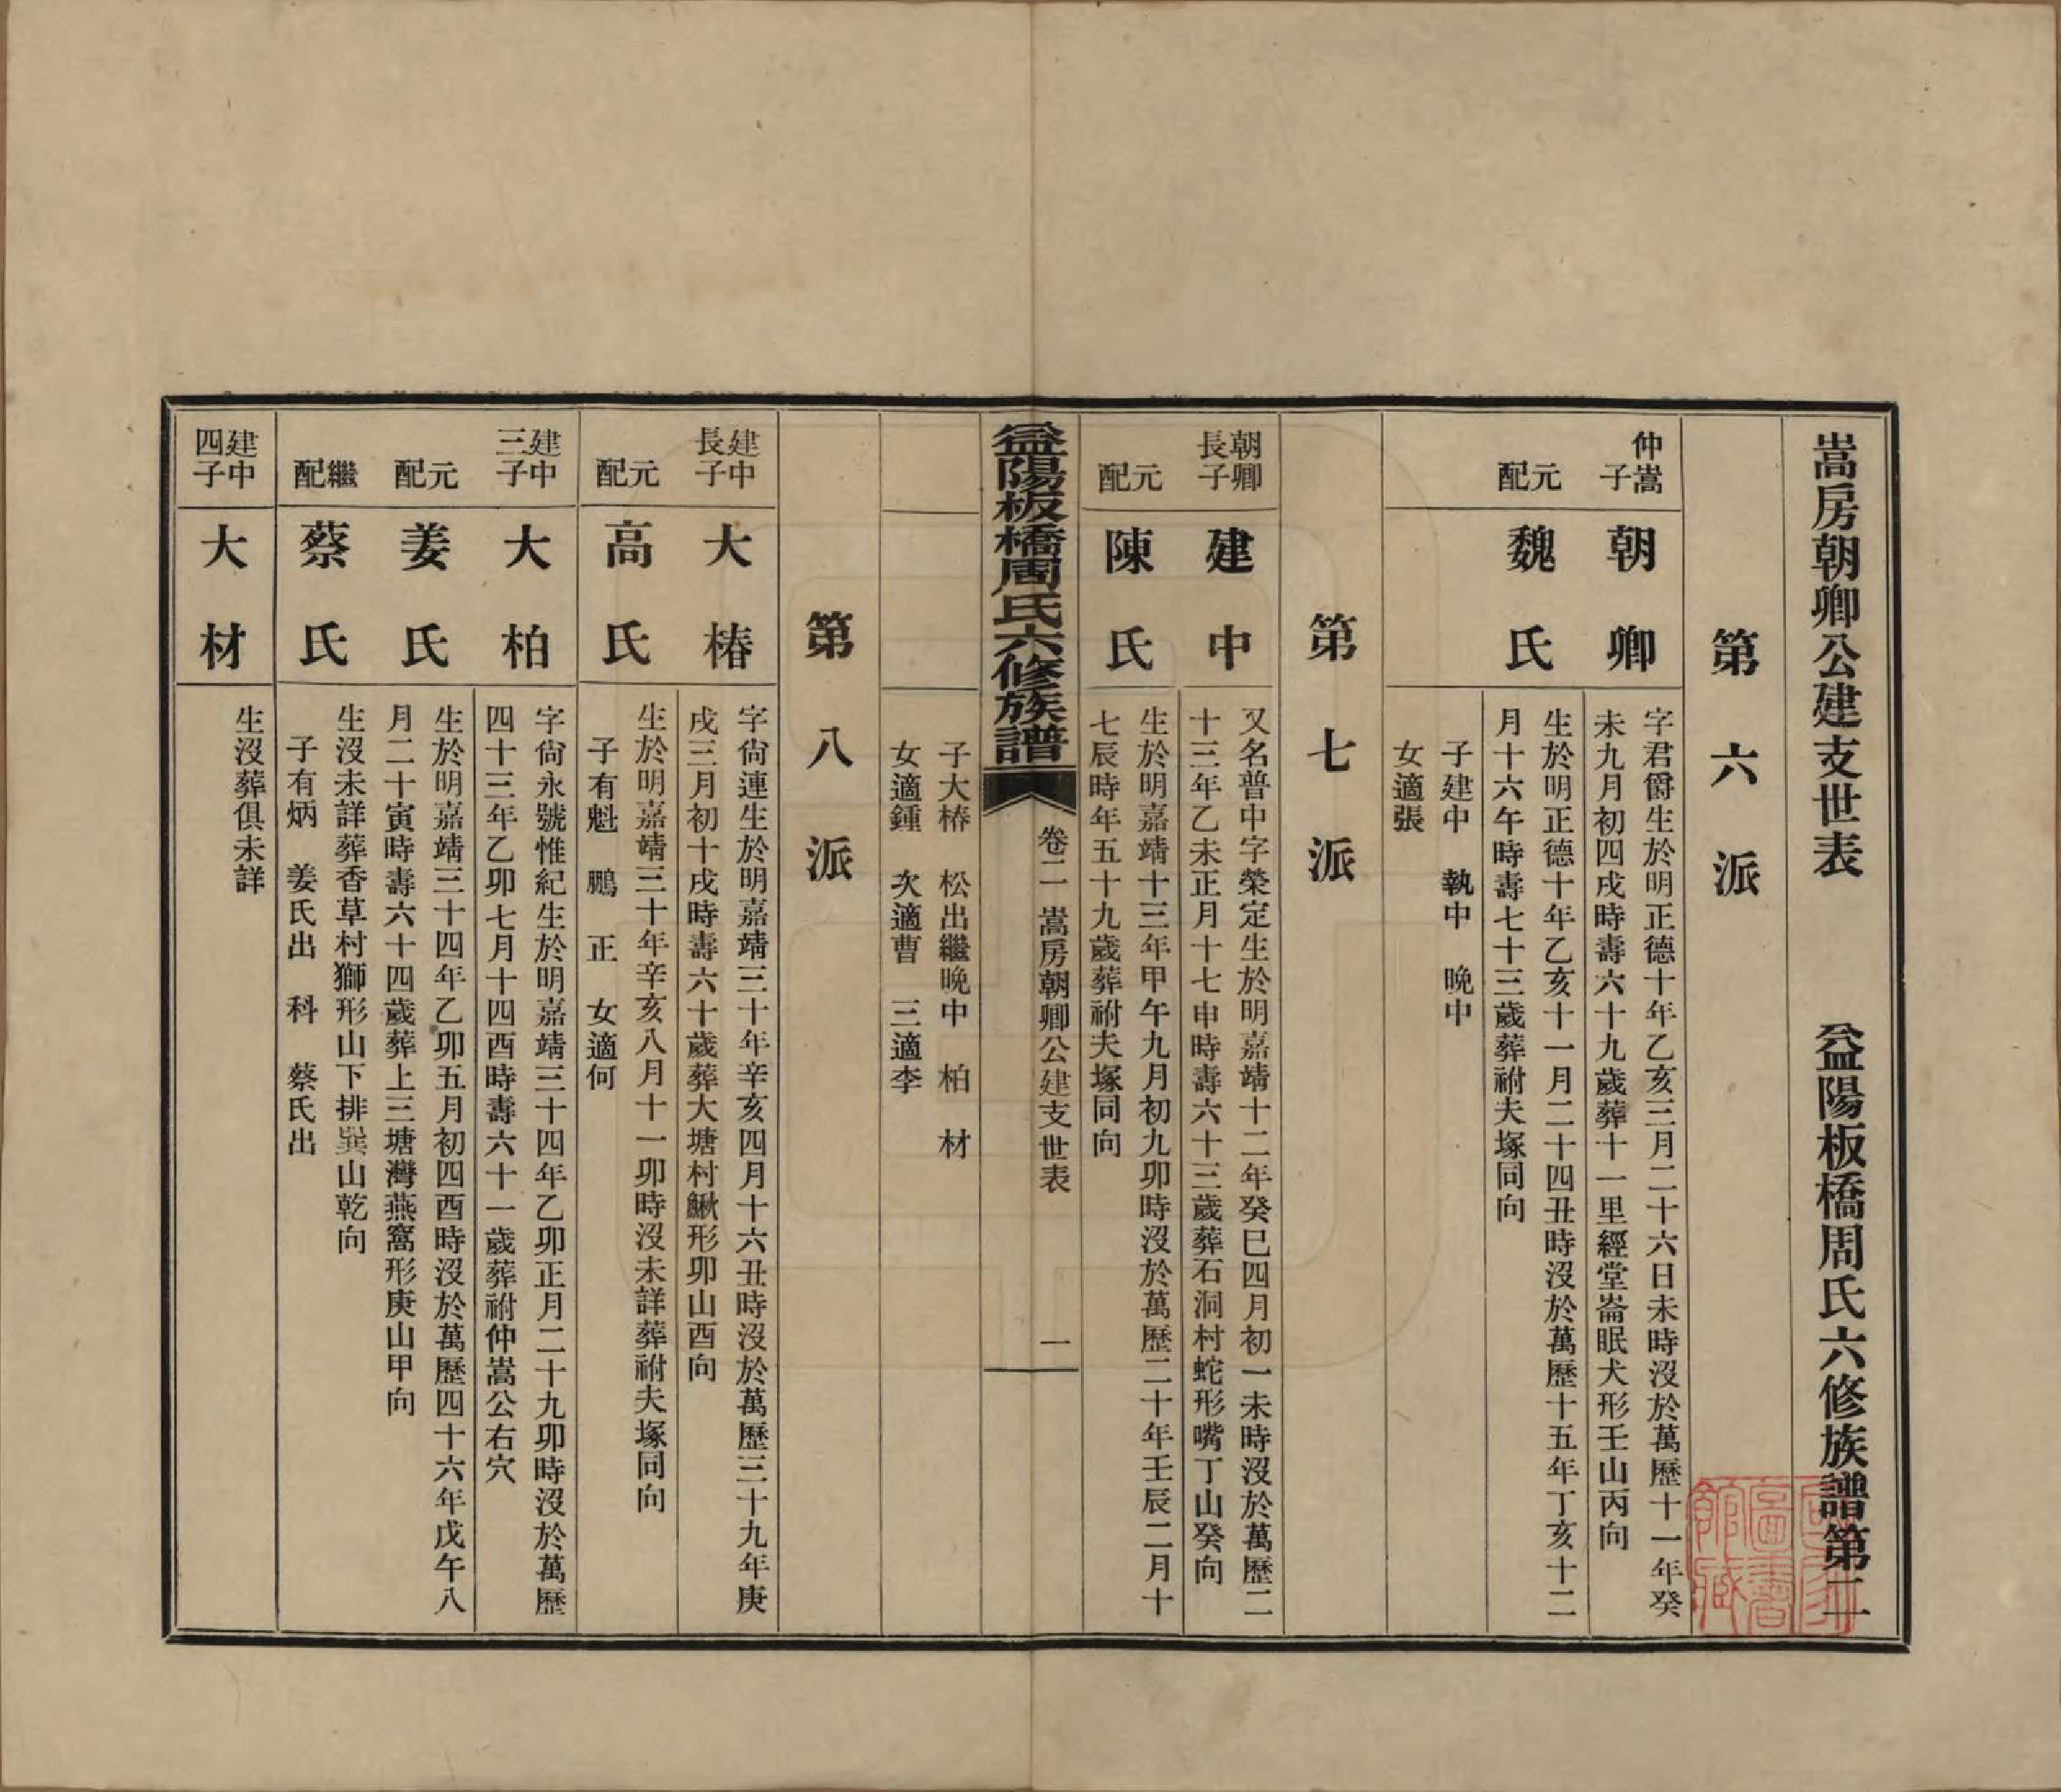 嵩房朝卿公建支世表　益陽板橋周氏六修族譜第二
第六派
仲嵩子
朝卿
字君爵生於明正德十年乙亥三月二十六日未時沒於萬歷十一年癸
未九月初四戌時壽六十九歲葬十一里經堂崙眠犬形壬山丙向
元配
魏氏
生於明正德十年乙亥十一月二十四丑時沒於萬歷十五年丁亥十二
月十六午時壽七十三歲葬祔夫塚同向
子建中　執中　晚中
女適張
第七派
朝卿長子
建中
又名普中字榮定生於明嘉靖十二年癸巳四月初一未時沒於萬歷二
十三年乙未正月十七申時壽六十三歲葬石洞村蛇形嘴丁山癸向
元配
陳氏
生於明嘉靖十三年甲午九月初九卯時沒於萬歷二十年壬辰二月十
七辰時年五十九歲葬祔夫塚同向
益陽板橋周氏六修族譜
卷二　嵩房朝卿公建支世表
一
子大椿　松出繼晚中　柏　材
女適鍾　次適曹　三適李
第八派
建中長子
大椿
字尙連生於明嘉靖三十年辛亥四月十六丑時沒於萬歷三十九年庚
戌三月初十戌時壽六十歲葬大塘村鰍形卯山酉向
元配
高氏
生於明嘉靖三十年辛亥八月十一卯時沒未詳葬祔夫塚同向
子有魁　鵬　正　女適何
建中三子
大柏
字尙永號惟紀生於明嘉靖三十四年乙卯正月二十九卯時沒於萬歷
四十三年乙卯七月十四酉時壽六十一歲葬祔仲嵩公右穴
元配
姜氏
生於明嘉靖三十四年乙卯五月初四酉時沒於萬歷四十六年戊午八
月二十寅時壽六十四歲葬上三塘灣燕窩形庚山甲向
繼配
蔡氏
生沒未詳葬香草村獅形山下排巽山乾向
子有炳　姜氏出　科　蔡氏出
建中四子
大材
生沒葬俱未詳